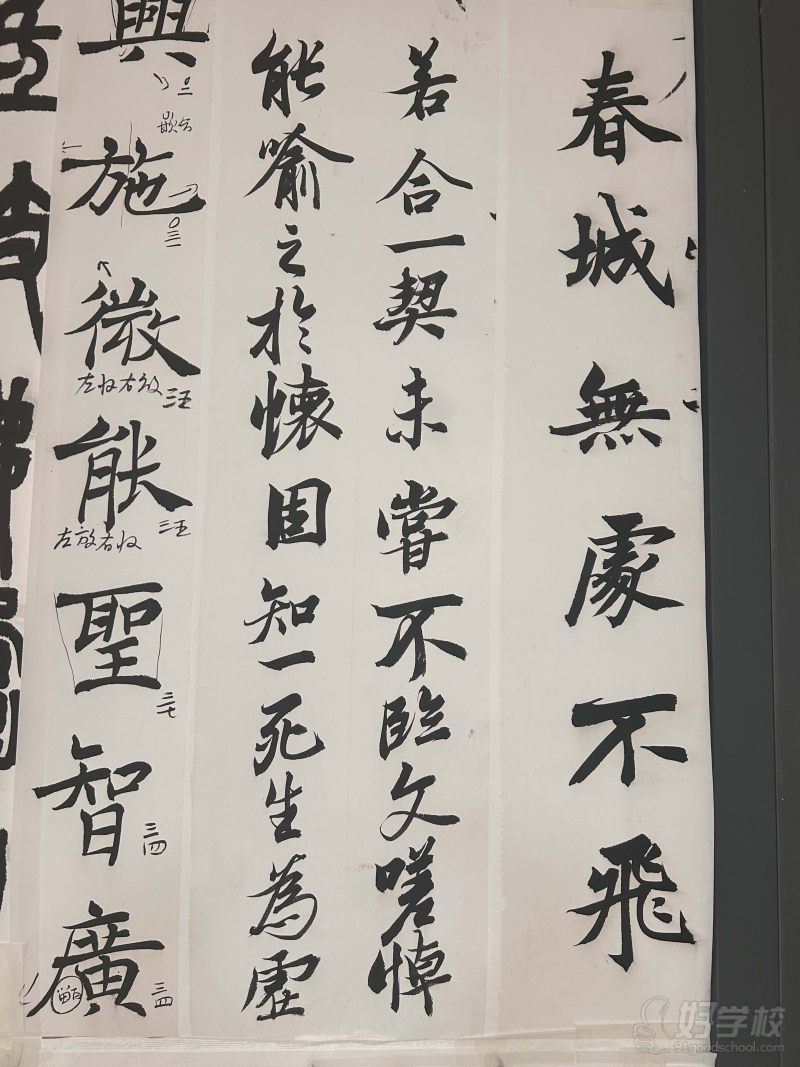 春城無處不飛
若合一契未嘗不臨文嗟悼
能喻之於懷固知一死生為虛
興
嵌合
施
微
左收右放
三五
能
左放右收
三五
聖
三七
智
三四
廣
三四
好学校
91goodschool.com